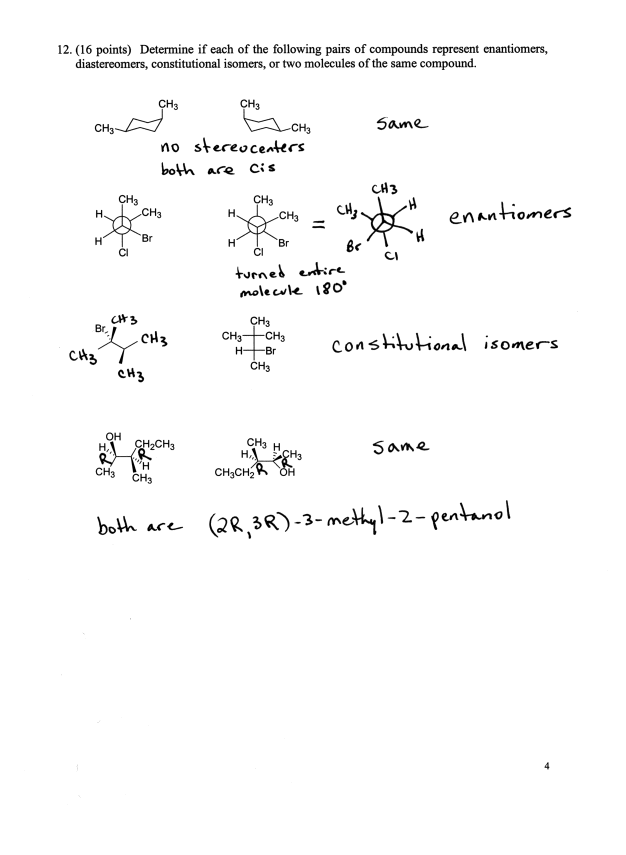 12. (16 points) Determine if each of the following pairs of compounds represent enantiomers,
diastereomers, constitutional isomers, or two molecules of the same compound.
CH3 CH3
CH3 CH3 same
no stereocenters
both are cis
CH3 CH3 CH3
H CH3 H CH3 = CH3 H enantiomers
H Br H Br Br H
Cl Cl Cl
turned entire
molecule 180°
CH3 CH3
Br CH3 CH3 CH3 constitutional isomers
CH3 H Br
CH3 CH3
OH CH3 H
H CH2CH3 H CH3 same
R R R
CH3 H CH3CH2 R OH
CH3
both are (2R,3R)-3-methyl-2-pentanol
4